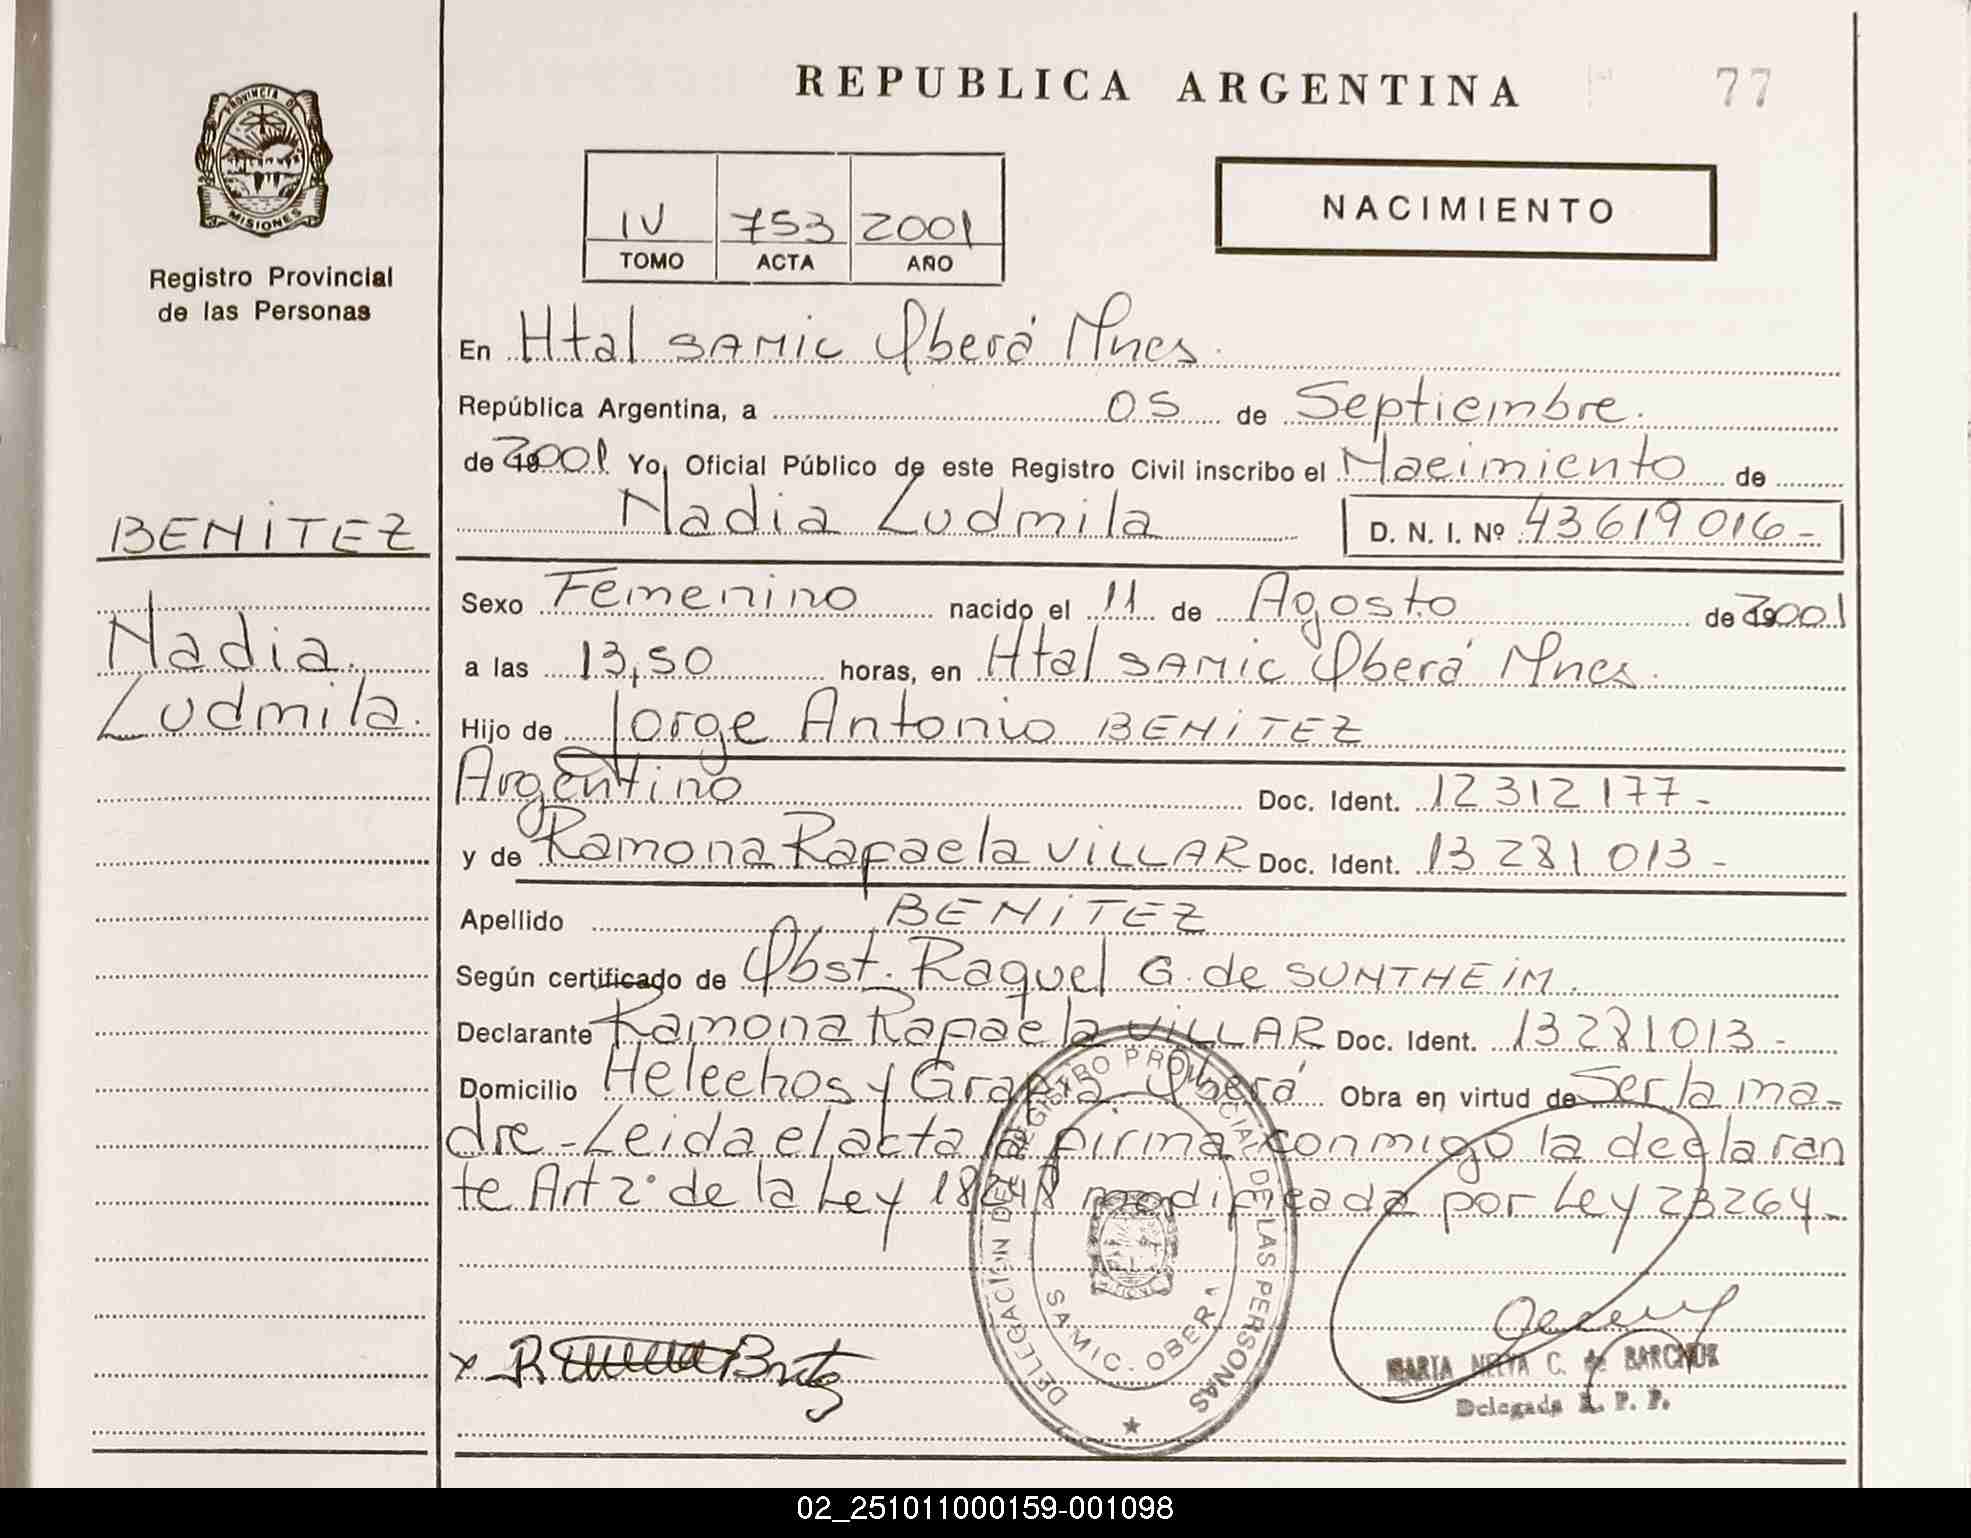 REPUBLICA ARGENTINA
77
PROVINCIA DE
MISIONES
Registro Provincial
de las Personas
IV 753 2001
TOMO ACTA AÑO
NACIMIENTO
En Htal SAMIC Oberá Mnes.
República Argentina, a 05 de Septiembre.
de 2001 Yo, Oficial Público de este Registro Civil inscribo el Nacimiento de
Nadia Ludmila D. N. I. Nº 43619016-
BENITEZ
Nadia
Ludmila.
Sexo Femenino nacido el 11 de Agosto de 2001
a las 13,50 horas, en Htal SAMIC Oberá Mnes.
Hijo de Jorge Antonio BENITEZ
Argentino Doc. Ident. 12312177-
y de Ramona Rafaela VILLAR Doc. Ident. 13281013-
Apellido BENITEZ
Según certificado de Obst. Raquel G. de SUNTHEIM.
Declarante Ramona Rafaela VILLAR Doc. Ident. 13281013-
Domicilio Helechos y Grafia. Oberá Obra en virtud de Ser la ma-
dre-Leida el acta la firma conmigo la declaran
te Art 2° de la Ley 18248 modificada por Ley 23264-
DELEGACIÓN DEL REGISTRO PROVINCIAL DE LAS PERSONAS
SAMIC. OBERA
x
MARIA NELVA C. de BARCHUK
Delegada R. P. P.
02_251011000159-001098